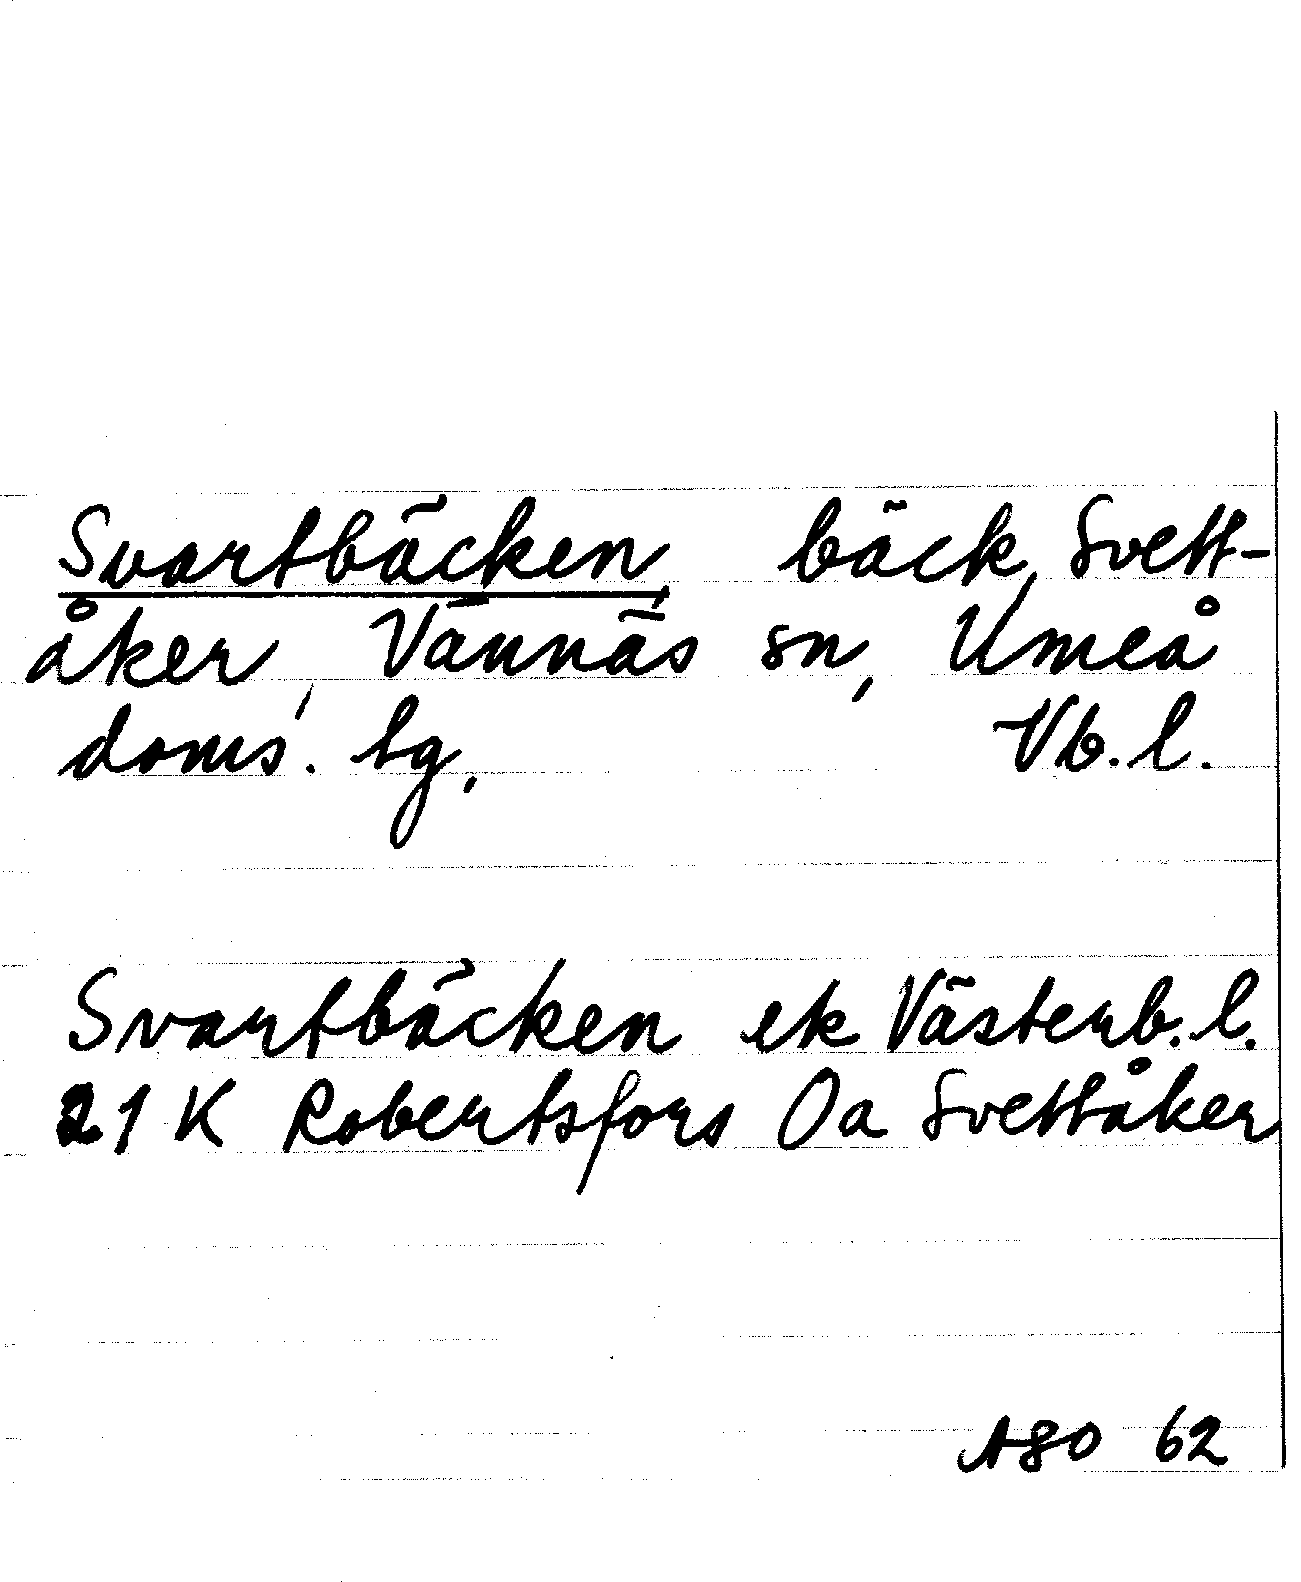 Svartbäcken, bäck, Svett-
åker, Vännäs sn, Umeå
doms. tg, Vb. l.
Svartbäcken ek Västerb. l.
21 K Robertsfors Oa Svettåker
ASO 62